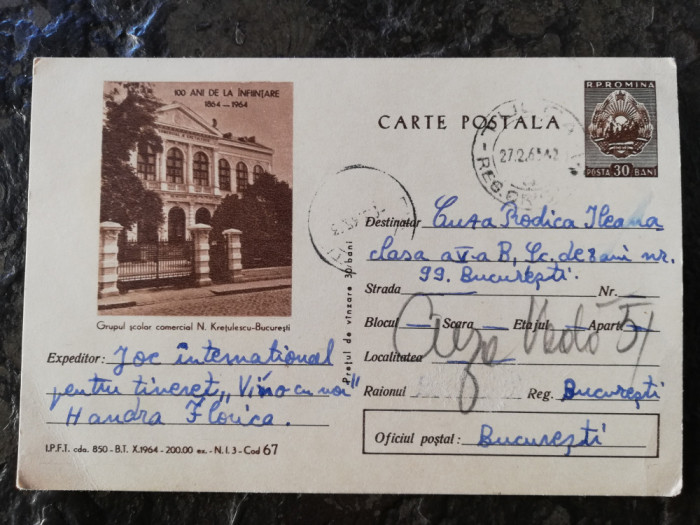 100 ANI DE LA ÎNFIINȚARE
1864-1964
Grupul școlar comercial N. Krețulescu-București
Expeditor: Joc internațional
pentru tineret „Vino cu noi"
Handra Florica.
I.P.F.T. cda. 850-B.T. X.1964-200.00 ex.-N.I.3-Cod 67
Prețul de vînzare 30 bani
CARTE POSTALA
27.2.65
R.P.ROMINA
POSTA 30 BANI
Destinatar Cuza Rodica Ileana
clasa a V-a B, Șc. de 8 ani nr.
99. București.
Strada Nr.
Blocul Scara Etajul Apart.
Localitatea
Cuza Vodă 51
Raionul Reg. București
Oficiul poștal: București